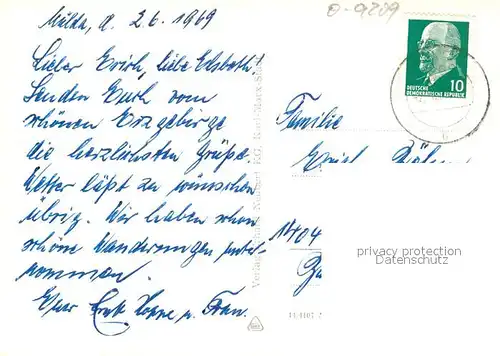 Milda, d. 2.6.1969
Lieber Erich, liebe Elsbeth!
Senden Euch vom
schönen Erzgebirge
die herzlichsten Grüße.
Wetter läßt zu wünschen
übrig. Wir haben schon
schöne Wanderungen
kommen.
Euer u. Frau.
0-9209
10
DEUTSCHE
DEMOKRATISCHE REPUBLIK
Familie
Erich
1404
privacy protection
Datenschutz
Verlag KG, Karl-Marx-St